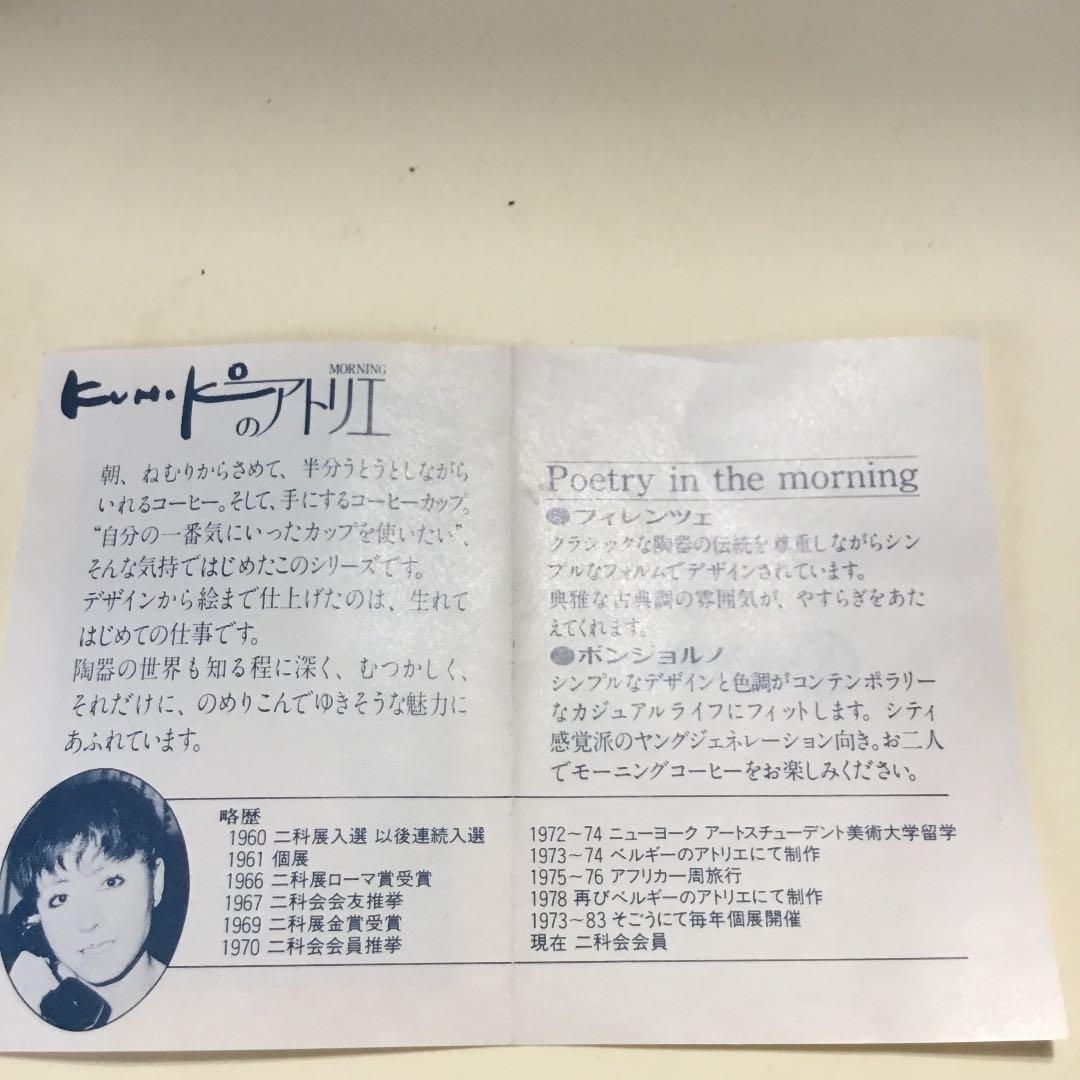 MORNING
KUNiKoのアトリエ
朝、ねむりからさめて、半分うとうとしながら
いれるコーヒー。そして、手にするコーヒーカップ。
“自分の一番気にいったカップを使いたい”、
そんな気持ではじめたこのシリーズです。
デザインから絵まで仕上げたのは、生れて
はじめての仕事です。
陶器の世界も知る程に深く、むつかしく、
それだけに、のめりこんでゆきそうな魅力に
あふれています。
Poetry in the morning
フィレンツェ
クラシックな陶器の伝統を尊重しながらシン
プルなフォルムでデザインされています。
典雅な古典調の雰囲気が、やすらぎをあた
えてくれます。
ボンジョルノ
シンプルなデザインと色調がコンテンポラリー
なカジュアルライフにフィットします。シティ
感覚派のヤングジェネレーション向き。お二人
でモーニングコーヒーをお楽しみください。
略歴
1960 二科展入選 以後連続入選
1961 個展
1966 二科展ローマ賞受賞
1967 二科会会友推挙
1969 二科展金賞受賞
1970 二科会会員推挙
1972～74 ニューヨーク アートスチューデント美術大学留学
1973～74 ベルギーのアトリエにて制作
1975～76 アフリカ一周旅行
1978 再びベルギーのアトリエにて制作
1973～83 そごうにて毎年個展開催
現在 二科会会員